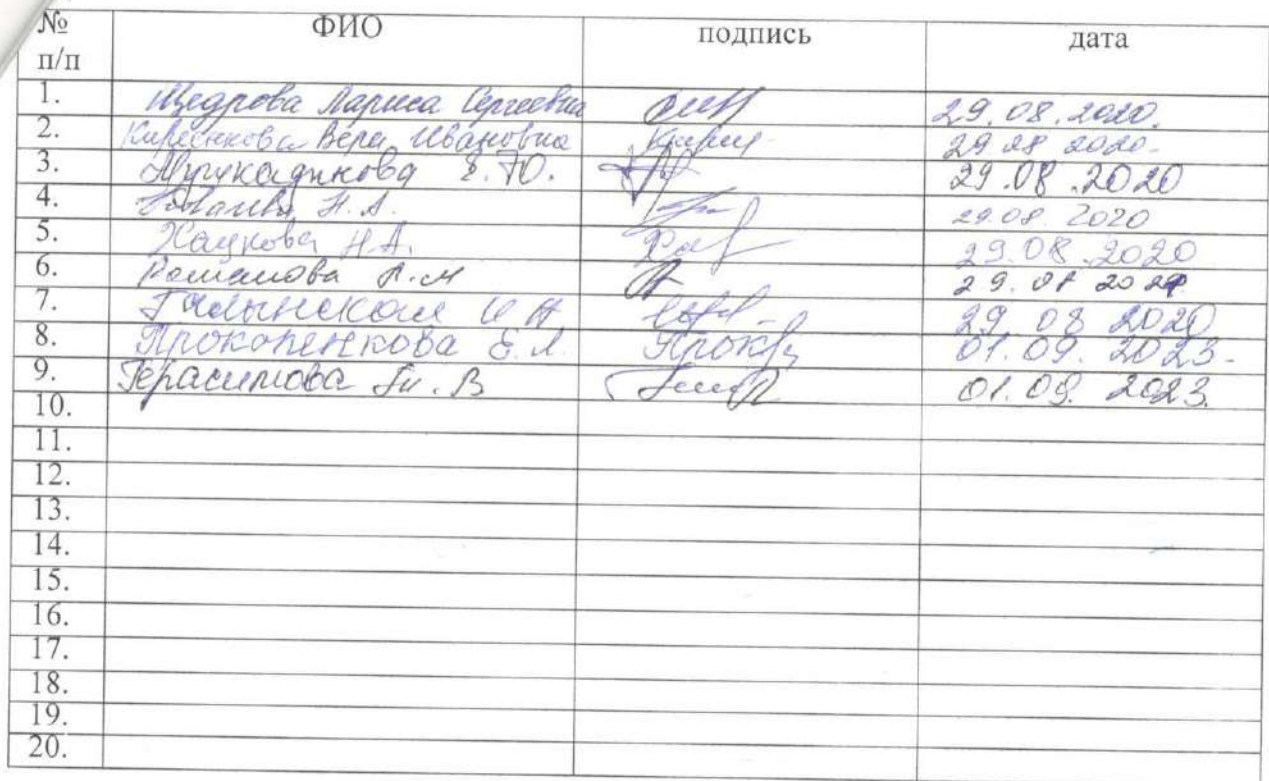 № п/п ФИО подпись дата
1. Щедрова Лариса Сергеевна 29.08.2020.
2. Вера Ивановна 29 08 2020.
3. Е.Ю. 29.08.2020
4. Н.А. 29.08.2020
5. Хацкова Н.А. 29.08.2020
6. Романова А.М 29.08
7. И Н 29.08 2020
8. Прокопенкова Е.Л. 01.09.2023.
9. Герасимова В 01.09.2023.
10.
11.
12.
13.
14.
15.
16.
17.
18.
19.
20.